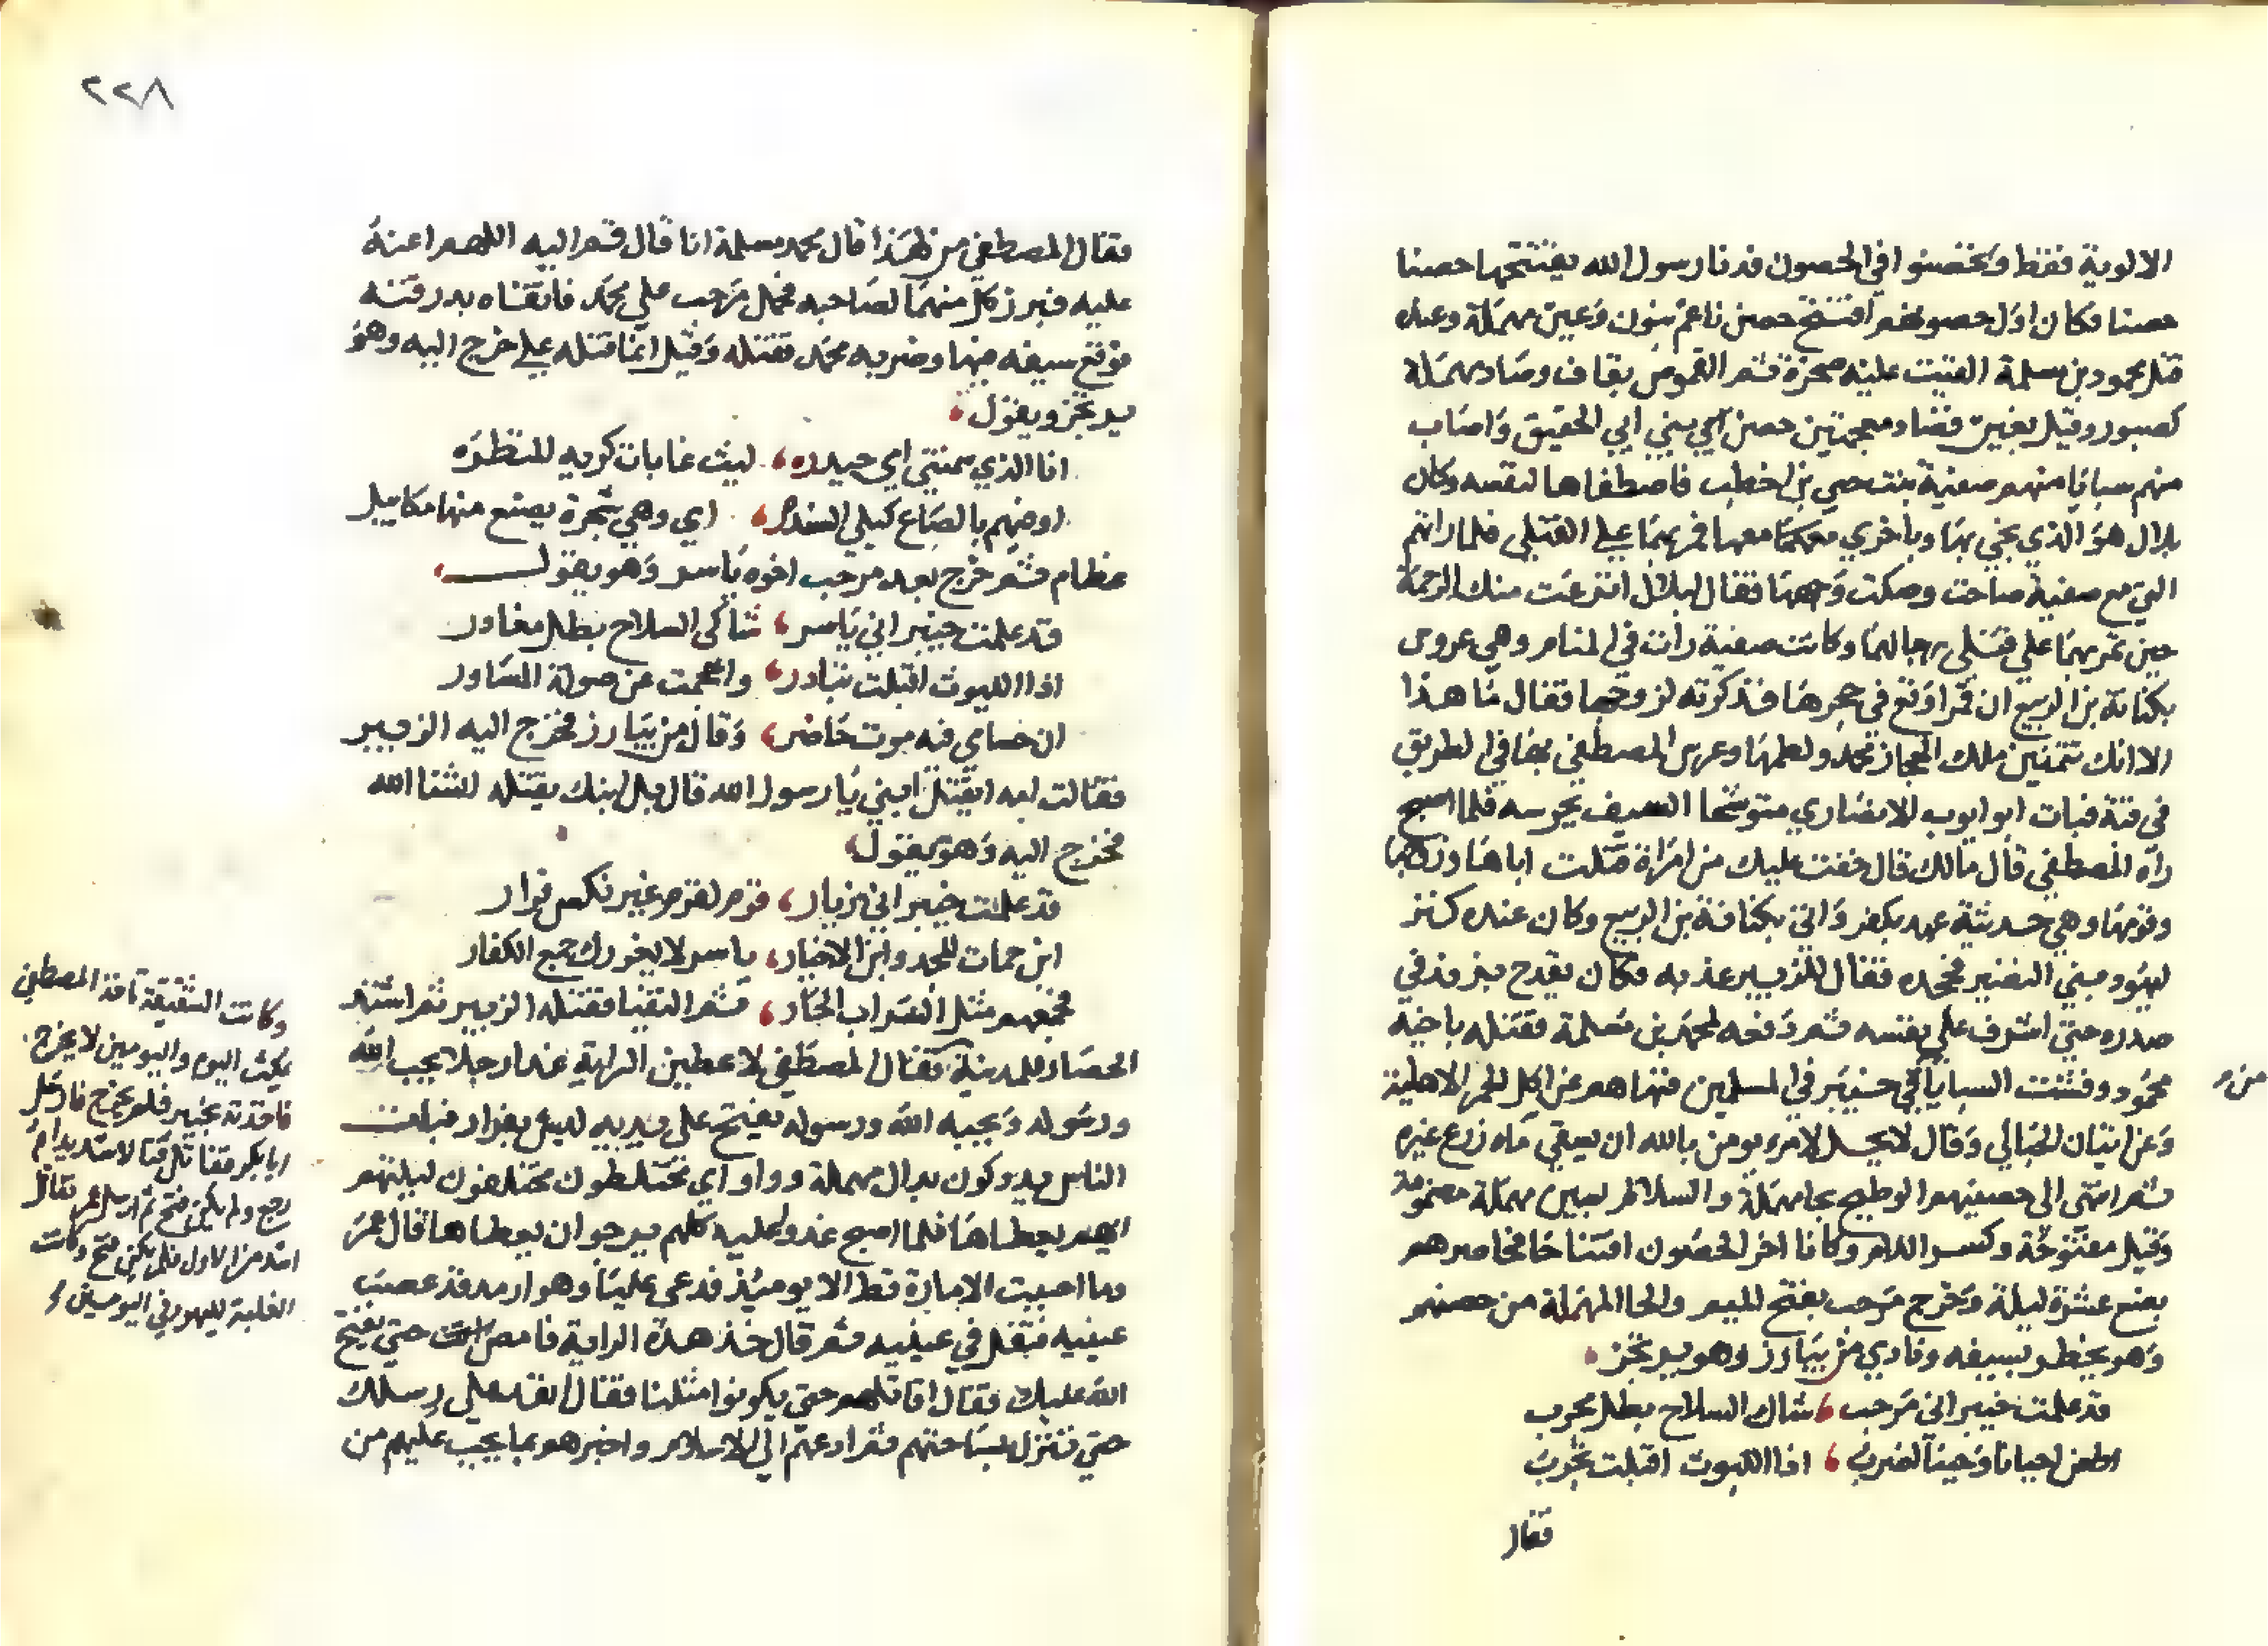 الالوية فقط وتحصنوا في الحصون فدنا رسول الله يفتتحها حصنا
حصنا فكان اول حصونهم افتتح حصن ناعم بنون وعين مهملة وعنده
قتل محمود بن مسلمة القيت عليه صخرة ثم القموص بقاف وصاد مهملة
كصبور وقيل بغين فضاد معجمتين حصن ابي بني ابي الحقيق واصاب
منهم سبايا منهم صفية بنت حيي بن اخطب فاصطفاها لنفسه وكان
بلال هو الذي يجي بها وباخري معها فمر بهما علي القتلى فلما راتهم
التي مع صفية صاحت وصكت وجهها فقال لبلال انزعت منك الرحمة
حين تمر بهما علي قتلي رجالهما وكانت صفية رات في المنام وهي عروس
بكنانة بن الربيع ان قمرا وقع في حجرها فذكرته لزوجها فقال ما هذا
الا انك تتمنين ملك الحجاز محمد ولطمها وعرس المصطفي بها في الطريق
في قبة فبات ابو ايوب الانصاري متوشحا السيف يحرسه فلما اصبح
راه المصطفي قال مالك قال خفت عليك من امراة قتلت اباها وزوجها
وقومها وهي حديثة عهد بكفر واتي بكنانة بن الربيع وكان عنده كنز
ليهود بني النضير فجحده فقال للزبير عذبه فكان يقدح بزند في
صدره حتي اشرف علي نفسه ثم دفعه لمحمد بن مسلمة فقتله باخيه
محمود وفشت السبايا في خيبر في المسلمين فنهاهم عن اكل الحمر الاهلية
من
وعن اتيان الحبالي وقال لا يحل لامرء يومن بالله ان يسقي ماه زرع غيره
ثم انتهى الى حصنيهم الوطيح بحا مهملة والسلالم بسين مهملة مضمومة
وقيل مفتوحة وكسر اللام وكانا اخر الحصون افتتاحا فحاصرهم
بضع عشرة ليلة وخرج مرحب بفتح الميم والحا المهملة من حصنهم
وهو يخطر بسيفه ونادي من يبارز وهو يرتجز
قد علمت خيبر اني مرحب ، شاك السلاح بطل مجرب
اطعن احيانا وحينا اضرب ، اذا الليوث اقبلت تجرب
فقال
٢٢٨
فقال المصطفي من لهذا قال محمد بن مسلمة انا قال قم اليه اللهم اعنه
عليه فبرز كل منهما لصاحبه فحمل مرحب علي محمد فاتقاه بدرقته
فوقع سيفه فيها وضربه محمد فقتله وقيل انما قتله علي خرج اليه وهو
يرتجز ويقول
انا الذي سمتني امي حيدره ، ليث غابات كريه المنظره
اوفيهم بالصاع كيلي السندره ، اي وهي شجرة يصنع منها مكاييل
عظام ثم خرج بعد مرحب اخوه ياسر وهو يقول
قد علمت خيبر اني ياسر ، شاكي السلاح بطل مغاور
اذا الليوث اقبلت تبادر ، واحجمت عن صولة المساور
ان حسامي فيه موت حاضر ، وقال من يبارز فخرج اليه الزبير
فقالت امه ايقتل ابني يا رسول الله قال بل ابنك يقتله ان شا الله
فخرج اليه وهو يقول
قد علمت خيبر اني زبار ، قرم لقرم غير نكس فرار
ابن حمات المجد وابن الاخيار ، ياسر لا يغررك جمع الكفار
فجمعهم مثل السراب الجار ، ثم التقيا فقتله الزبير ثم اشتد
الحصار فقال المصطفي لاعطين الراية غدا رجلا يحب الله
ورسوله ويحبه الله ورسوله يفتح علي يديه ليس بفرار فبات
الناس يدوكون بدال مهملة وواو اي يختلطون مختلفون ليلتهم
ايهم يعطاها فلما اصبح غدو عليه كلهم يرجو ان يعطاها قال عمر
وما احببت الامارة قط الا يومئذ فدعي عليا وهو ارمد قد عصب
عينيه فتفل في عينيه ثم قال خذ هذه الراية فامض حتي يفتح
الله عليك فقال اقاتلهم حتي يكونوا مثلنا فقال انفذ علي رسلك
حتي تنزل بساحتهم ثم ادعهم الي الاسلام واخبرهم بما يجب عليهم من
وكانت الشقيقة تاخذ المصطفي
يمكث اليوم واليومين لا يخرج
فاخذته بخيبر فلم يخرج فارسل
ابا بكر فقاتل قتالا شديدا ثم
رجع ولم يكن فتح ثم ارسل عمر فقاتل
اشد من الاول فلم يكن فتح وكانت
الغلبة لليهود في اليومين